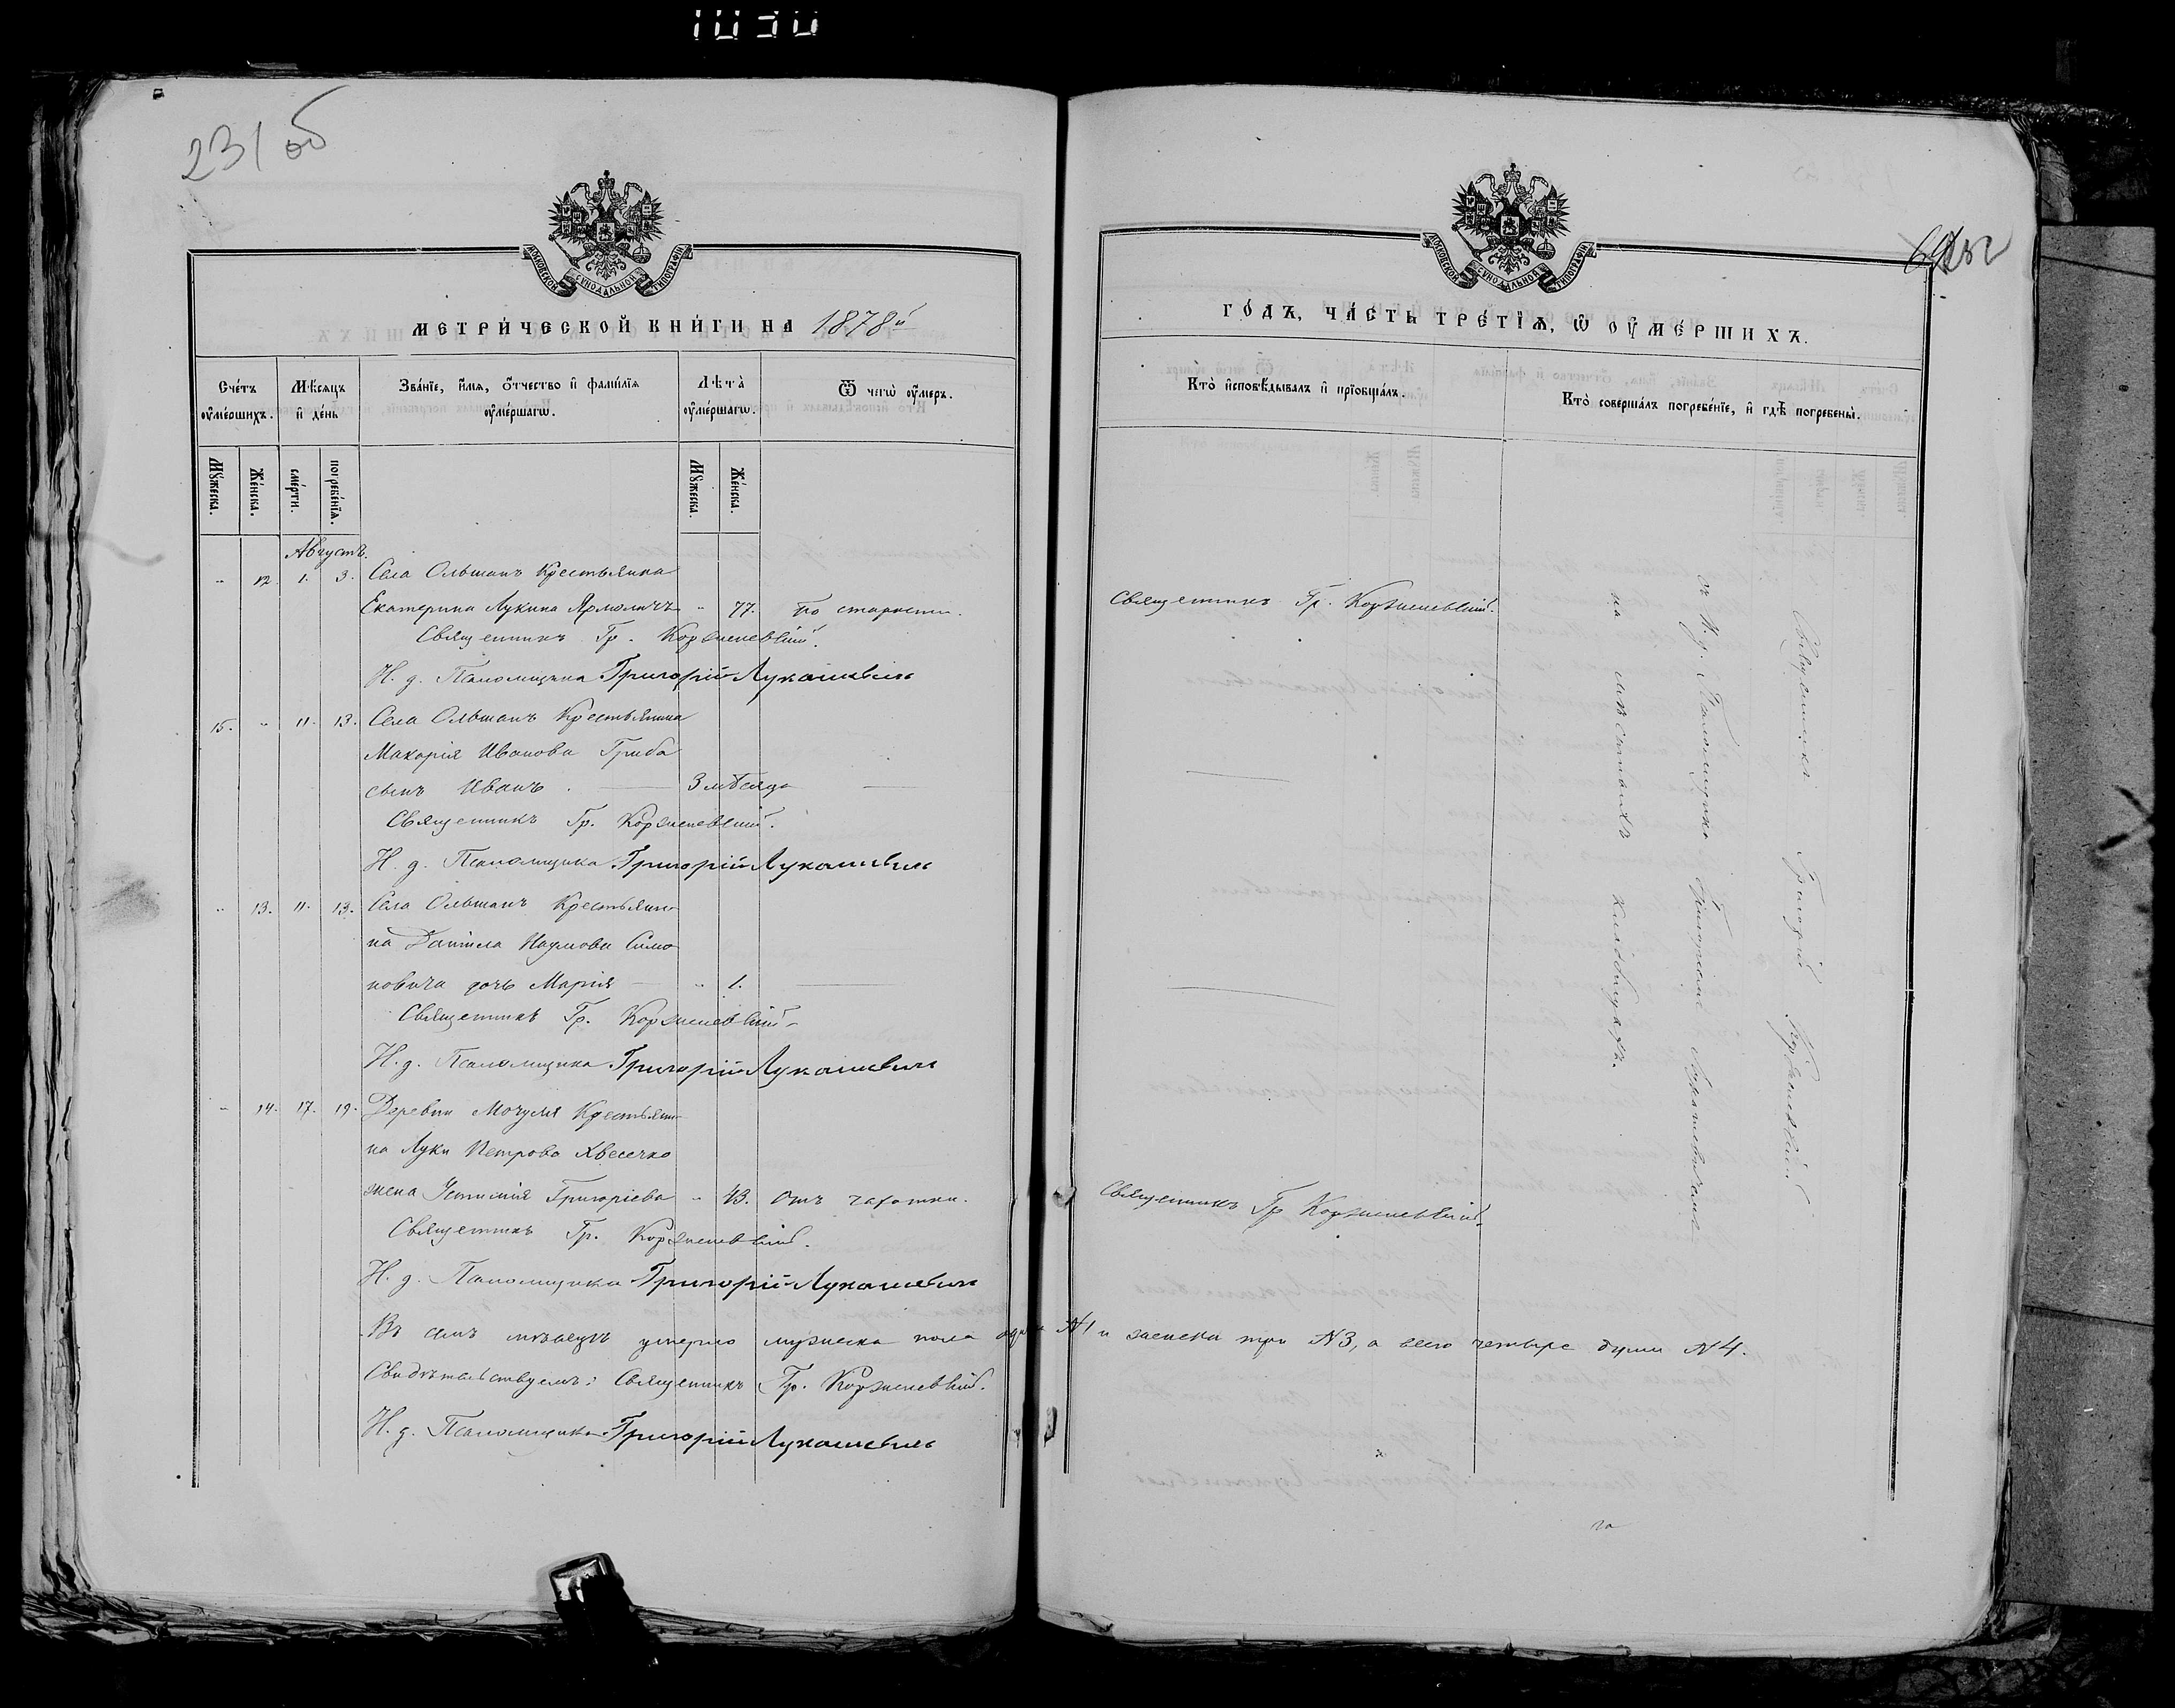 1030
231 об
МОСКОВСКОЙ СѴНОДАЛЬНОЙ ТИПОГРАФІИ
МЕТРИ́ЧЕСКОЙ КНИ́ГИ НА 1878й
Сче́тъ ᲂу҆ме́ршихъ.
Мѣ́сяцъ и҆ де́нь
Зва́нїе, и҆́мя, ѻ҆́тчество и҆ фами́лїя ᲂу҆ме́ршагѡ.
Лѣ́та ᲂу҆ме́ршагѡ.
Ѿ чегѡ̀ ᲂу҆́меръ.
Мꙋ́жеска.
Же́нска.
сме́рти.
погребе́нїѧ.
Мꙋ́жеска.
Же́нска.
Августъ.
" 12. 1. 3. Села Ольшанъ Крестьянка
Екатерина Лукина Ярмоличъ " 77. По старости.
Священникъ Гр. Корженевскій.
И. д. Псаломщика Григорій Лукашевичъ
15. " 11. 13. Села Ольшанъ Крестьянина
Макарія Иванова Гриба
сынъ Иванъ. 3 мѣсяца
Священникъ Гр. Корженевскій.
И. д. Псаломщика Григорій Лукашевичъ
" 13. 11. 13. Села Ольшанъ Крестьяни-
на Даніила Наумова Симо
новича дочь Марія " 1.
Священникъ Гр. Корженевскій.
И. д. Псаломщика Григорій Лукашевичъ
" 14. 17. 19. Деревни Мочуля Крестьяни-
на Луки Петрова Хвесечко
жена Устинія Григоріева " 43. Отъ чахотки.
Священникъ Гр. Корженевскій.
И. д. Псаломщика Григорій Лукашевичъ
Въ семъ мѣсяцѣ умерло мужеска пола одинъ №1 и женска три №3, а всего четыре души №4.
Свидѣтельствуемъ: Священникъ Гр. Корженевскій.
И. д. Псаломщика Григорій Лукашевичъ
МОСКОВСКОЙ СѴНОДАЛЬНОЙ ТИПОГРАФІИ
ГО́ДЪ, ЧА́СТЬ ТРЕ́ТЇѦ, Ѡ҆ ОУ҆МЕ́РШИХЪ.
Кто̀ и҆сповѣ́дывалъ и҆ прїѡбща́лъ.
Кто̀ соверша́лъ погребе́нїе, и҆ гдѣ̀ погребены̀.
Священникъ Гр. Корженевскій.
Священникъ Гр. Корженевскій.
Священникъ Григорій Корженевскій
съ И. д. Псаломщика Григоріемъ Лукашевичемъ
на мѣстныхъ кладбищахъ.